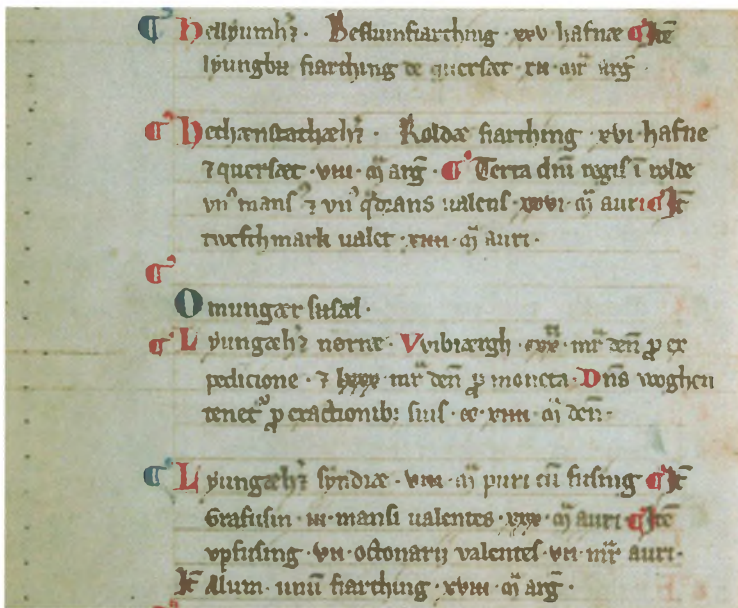 ¶ Hellyumhꝫ. Beflumfiarthing · xxv hafnæ ¶ Itē
lyungbu fiarthing de quersæt · xii · mꝛ̄ arḡ ·
¶ Hethænstathæhꝫ · Roldæ fiarthing · xvi · hafne
⁊ quersæt · viii · m̄ arḡ · ¶ Terra dn̄i regis ī rolde
vnꝰ mans ⁊ vnꝰ qͣdrans ualens · xxvi · m̄ auri ¶ Itē
twefthmark ualet · xiiii · m̄ auri ·
¶
Omungær susæl ·
¶ Lyungæhꝫ nørræ · Vvibiærgh · mꝛ̄ den̄ ꝓ ex
pedicione · ⁊ lxxx · mꝛ̄ den̄ ꝓ moneta · Dn̄s woghen
tenetꝰ ꝓ exactionibꝫ suis · cc · xiiii · m̄ den̄ ·
¶ Lyungæhꝫ syndræ · viii · m̄ puri cū fusing ¶ Itē
Grafusin · iii · mansi ualentes · xxx · m̄ auri ¶ Itē
vpfusing · vii · octonarij valentes · vii · mꝛ̄ auri ·
Itē Alum · unū fiarthing · xviii · m̄ arḡ ·